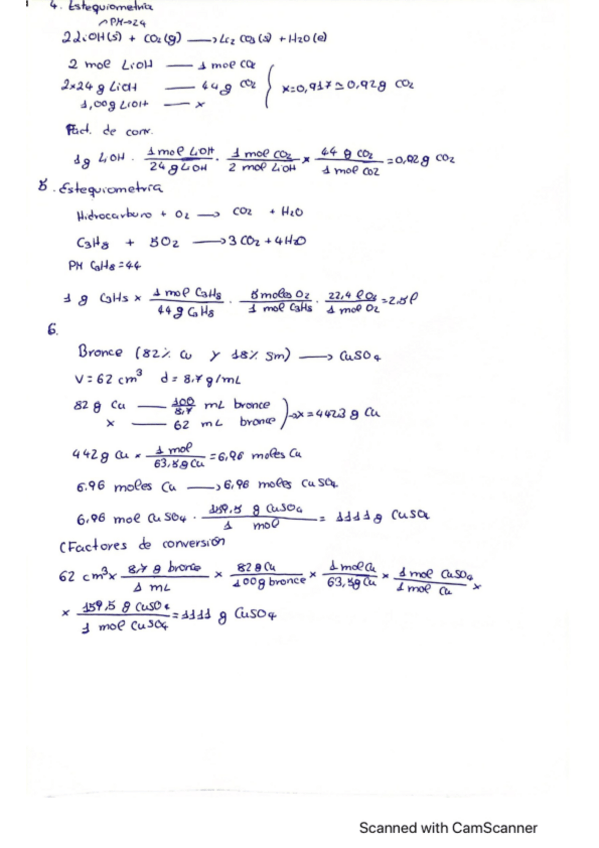 4. Estequiometría
PM→24
2LiOH(s) + CO2(g) → Li2CO3(s) + H2O(l)
2 mol LiOH — 1 mol CO2
2×24 g LiOH — 44g CO2
1,00g LiOH — x
x=0,917≃0,92g CO2
Fact. de conv.
1g LiOH · 1 mol LiOH / 24g LiOH · 1 mol CO2 / 2 mol LiOH × 44 g CO2 / 1 mol CO2 = 0,92g CO2
5. Estequiometría
Hidrocarburo + O2 → CO2 + H2O
C3H8 + 5O2 → 3CO2 + 4H2O
PM C3H8 = 44
1 g C3H8 × 1 mol C3H8 / 44g C3H8 · 5 moles O2 / 1 mol C3H8 · 22,4 l O2 / 1 mol O2 = 2.5l
6.
Bronce (82% Cu y 18% Sm) → CuSO4
V = 62 cm3 d = 8.7 g/mL
82 g Cu — 100/8.7 mL bronce
x — 62 mL bronce
x = 442,3 g Cu
442g Cu × 1 mol / 63,5g Cu = 6,96 moles Cu
6.96 moles Cu → 6,96 moles CuSO4
6,96 mol CuSO4 · 159,5 g CuSO4 / 1 mol = 1111 g CuSO4
(Factores de conversión
62 cm3 × 8,7 g bronce / 1 mL × 82 g Cu / 100g bronce × 1 mol Cu / 63,5g Cu × 1 mol CuSO4 / 1 mol Cu ×
× 159,5 g CuSO4 / 1 mol CuSO4 = 1111 g CuSO4
Scanned with CamScanner